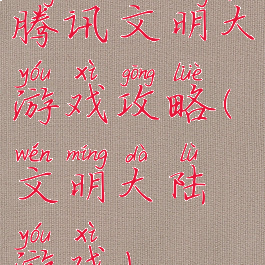 腾讯文明大
yóu xì gōng lüè
游戏攻略(
wén míng dà lù
文明大陆
yóu xì
游戏)